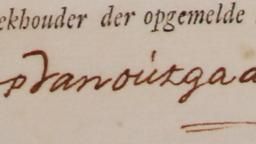 ekhouder der opgemelde
pvanoutgaa